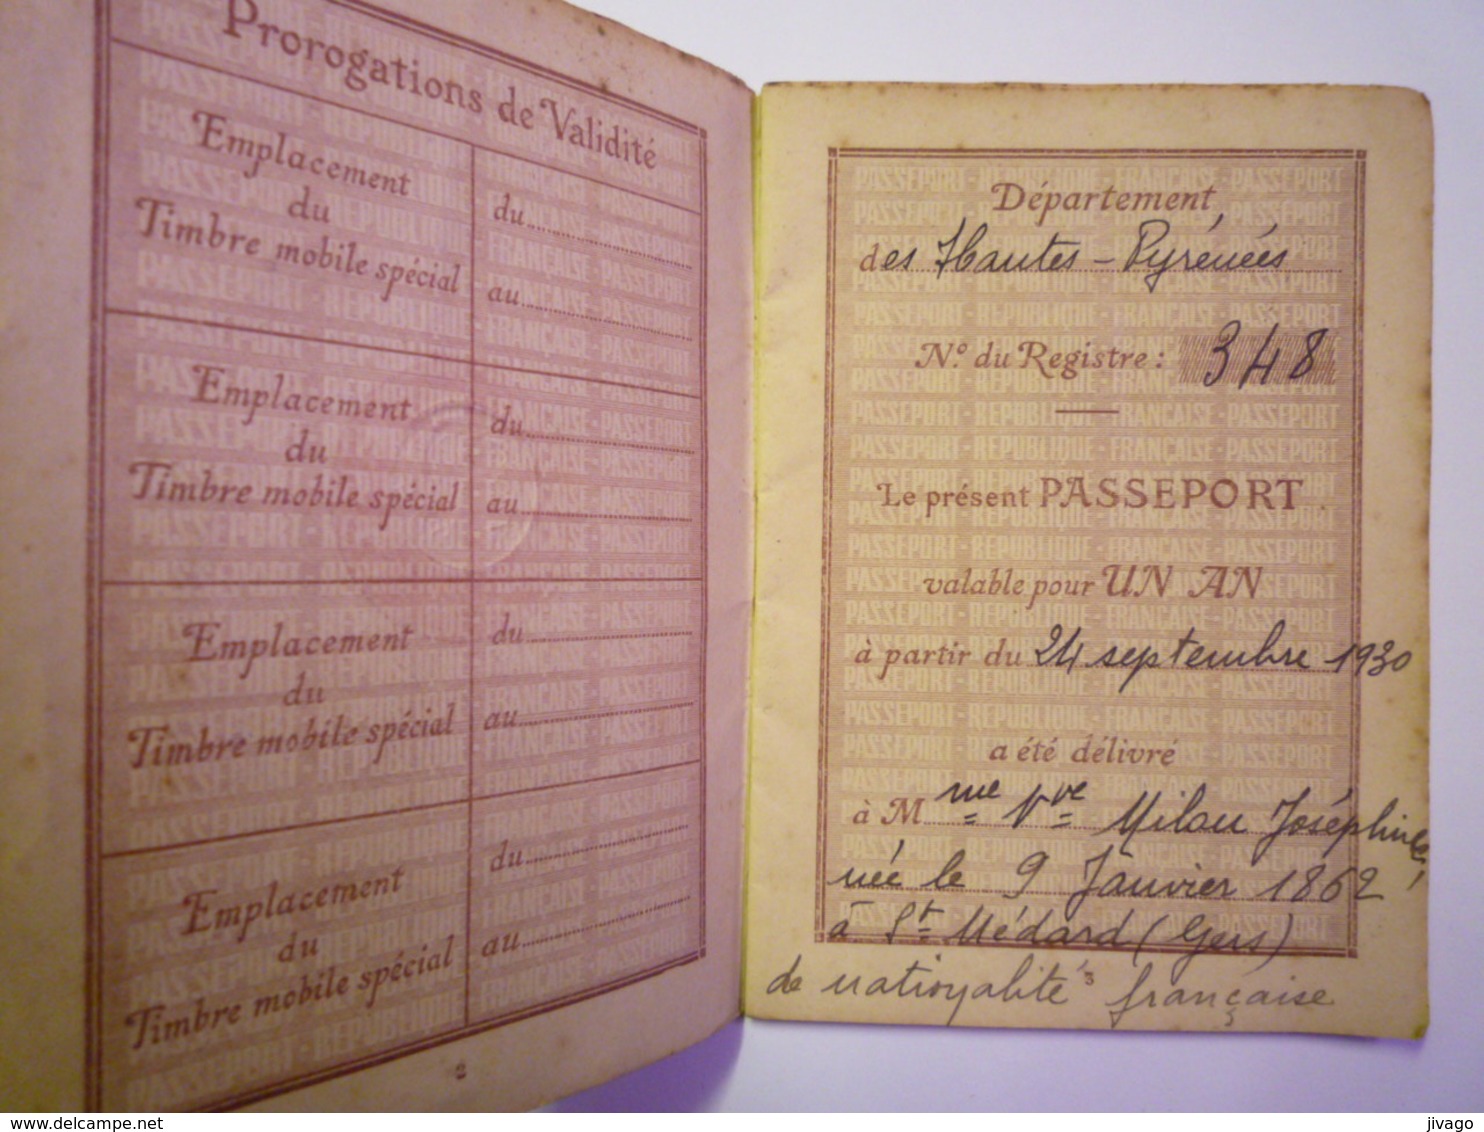 Prorogations de Validité
Emplacement
du
Timbre mobile spécial
du
au
Emplacement
du
Timbre mobile spécial
du
au
Emplacement
du
Timbre mobile spécial
du
au
Emplacement
du
Timbre mobile spécial
du
au
2
Département
des Hautes-Pyrénées
N° du Registre : 348
Le présent PASSEPORT
valable pour UN AN
à partir du 24 septembre 1930
a été délivré
à Mme Vve Milou Joséphine,
née le 9 Janvier 1862
à St Médard (Gers)
de nationalité française
3
PASSEPORT - RÉPUBLIQUE - FRANÇAISE - PASSEPORT
www.delcampe.net
jivago